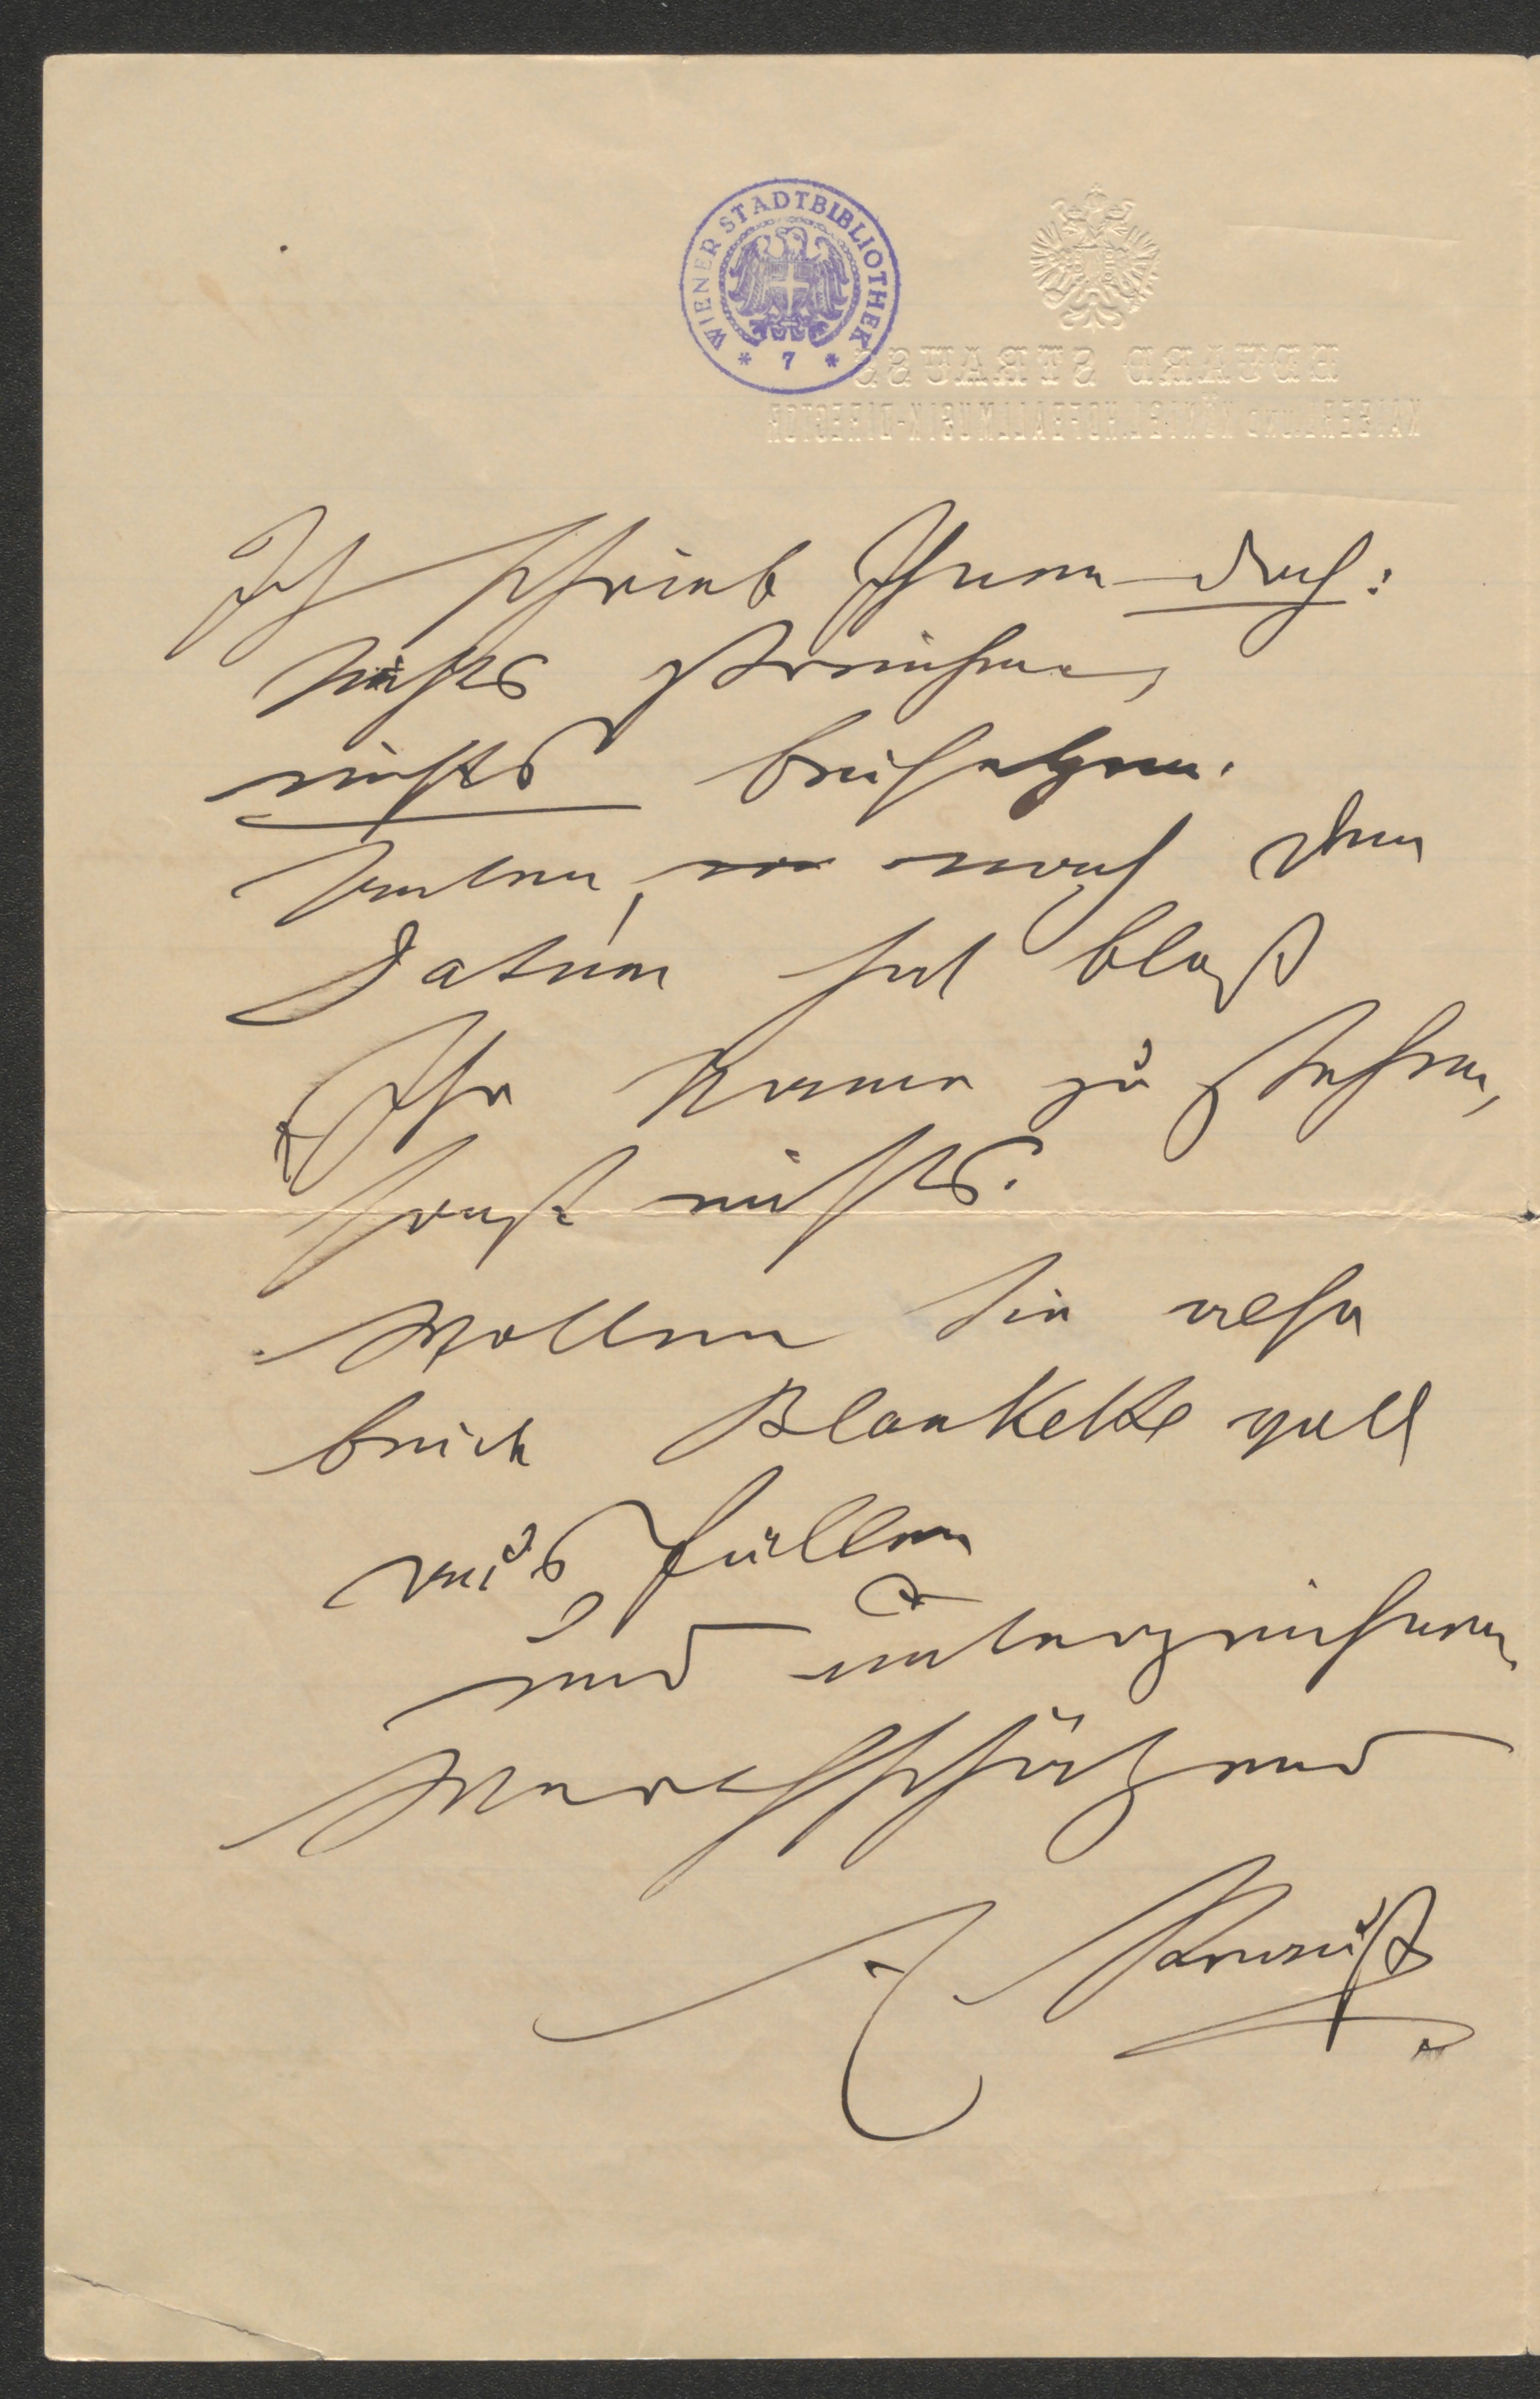 WIENER STADTBIBLIOTHEK
* 7 *
EDUARD STRAUSS
KAISERL. UND KÖNIGL. HOFBALLMUSIK-DIRECTOR
Ich schrieb Ihnen doch:
Nichts streichen,
nichts beisetzen.
Unten, nach dem
Datum hat bloß
Ihr Name zu stehen,
sonst nichts.
Wollen Sie also
beide Blankette
aus füllen
und unterzeichnen
Wertschätzend
E Strauß